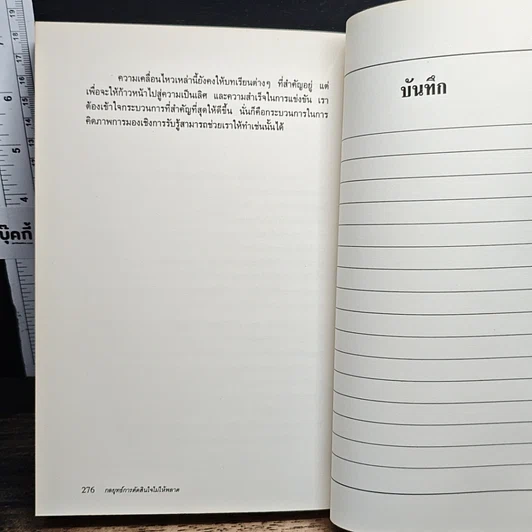 ความเคลื่อนไหวเหล่านี้ยังคงให้บทเรียนต่างๆ ที่สำคัญอยู่ แต่
เพื่อจะให้ก้าวหน้าไปสู่ความเป็นเลิศ และความสำเร็จในการแข่งขัน เรา
ต้องเข้าใจกระบวนการที่สำคัญที่สุดให้ดีขึ้น นั่นก็คือกระบวนการในการ
คิดภาพการมองเชิงการรับรู้สามารถช่วยเราให้ทำเช่นนั้นได้
276 กลยุทธ์การตัดสินใจไม่ให้พลาด
บันทึก
บุ๊คกี้
6
5
4